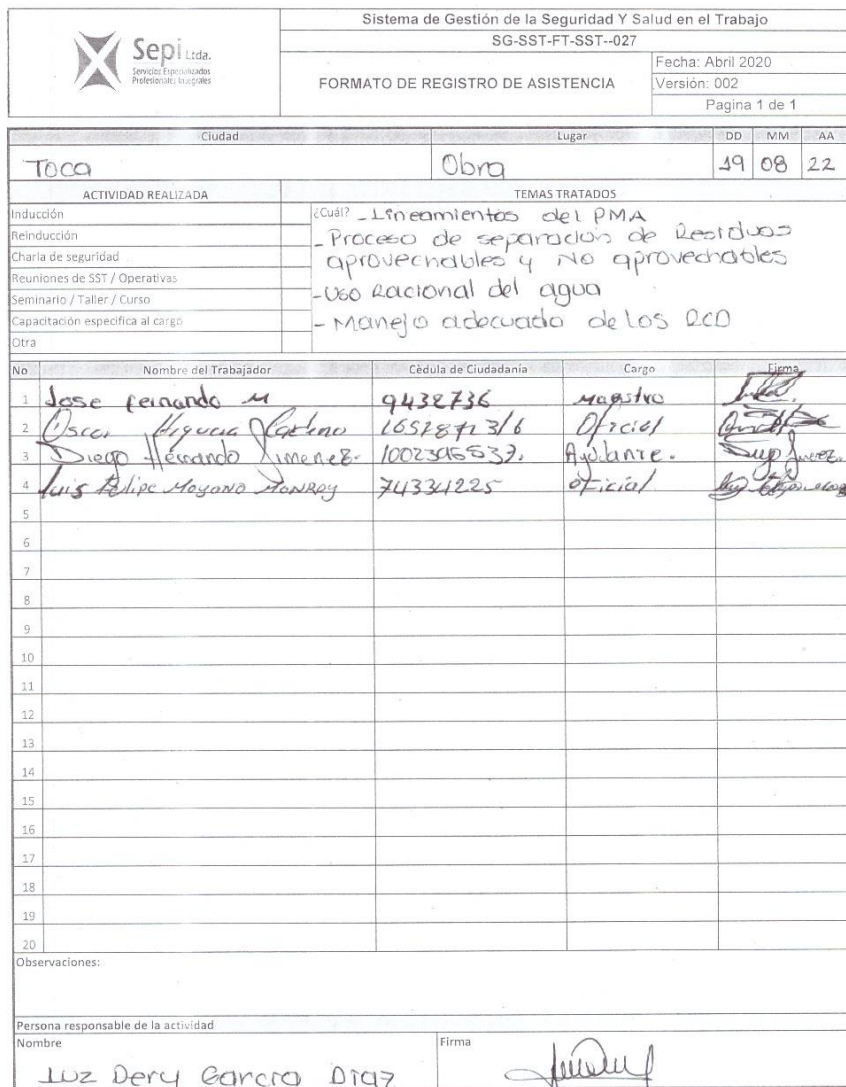 Sepi Ltda.
Servicios Especializados
Profesionales Integrales
Sistema de Gestión de la Seguridad Y Salud en el Trabajo
SG-SST-FT-SST--027
FORMATO DE REGISTRO DE ASISTENCIA
Fecha: Abril 2020
Versión: 002
Pagina 1 de 1
Ciudad Lugar DD MM AA
Toca Obra 19 08 22
ACTIVIDAD REALIZADA TEMAS TRATADOS
Inducción
Reinducción
Charla de seguridad
Reuniones de SST / Operativas
Seminario / Taller / Curso
Capacitación especifica al cargo
Otra
¿Cuál? - Lineamientos del PMA
- Proceso de separación de Residuos
aprovechables y No aprovechables
- Uso Racional del agua
- Manejo adecuado de los RCD
No Nombre del Trabajador Cèdula de Ciudadanía Cargo Firma
1 Jose fernando M 9432736 Maestro
2 Oscar Higuera Oficial
3 Diego Hernando Jimenez. Ayudante.
4 Luis Felipe Moyano Monroy 74334225 oficial
5
6
7
8
9
10
11
12
13
14
15
16
17
18
19
20
Observaciones:
Persona responsable de la actividad
Nombre Firma
Luz Dery Garcia Diaz